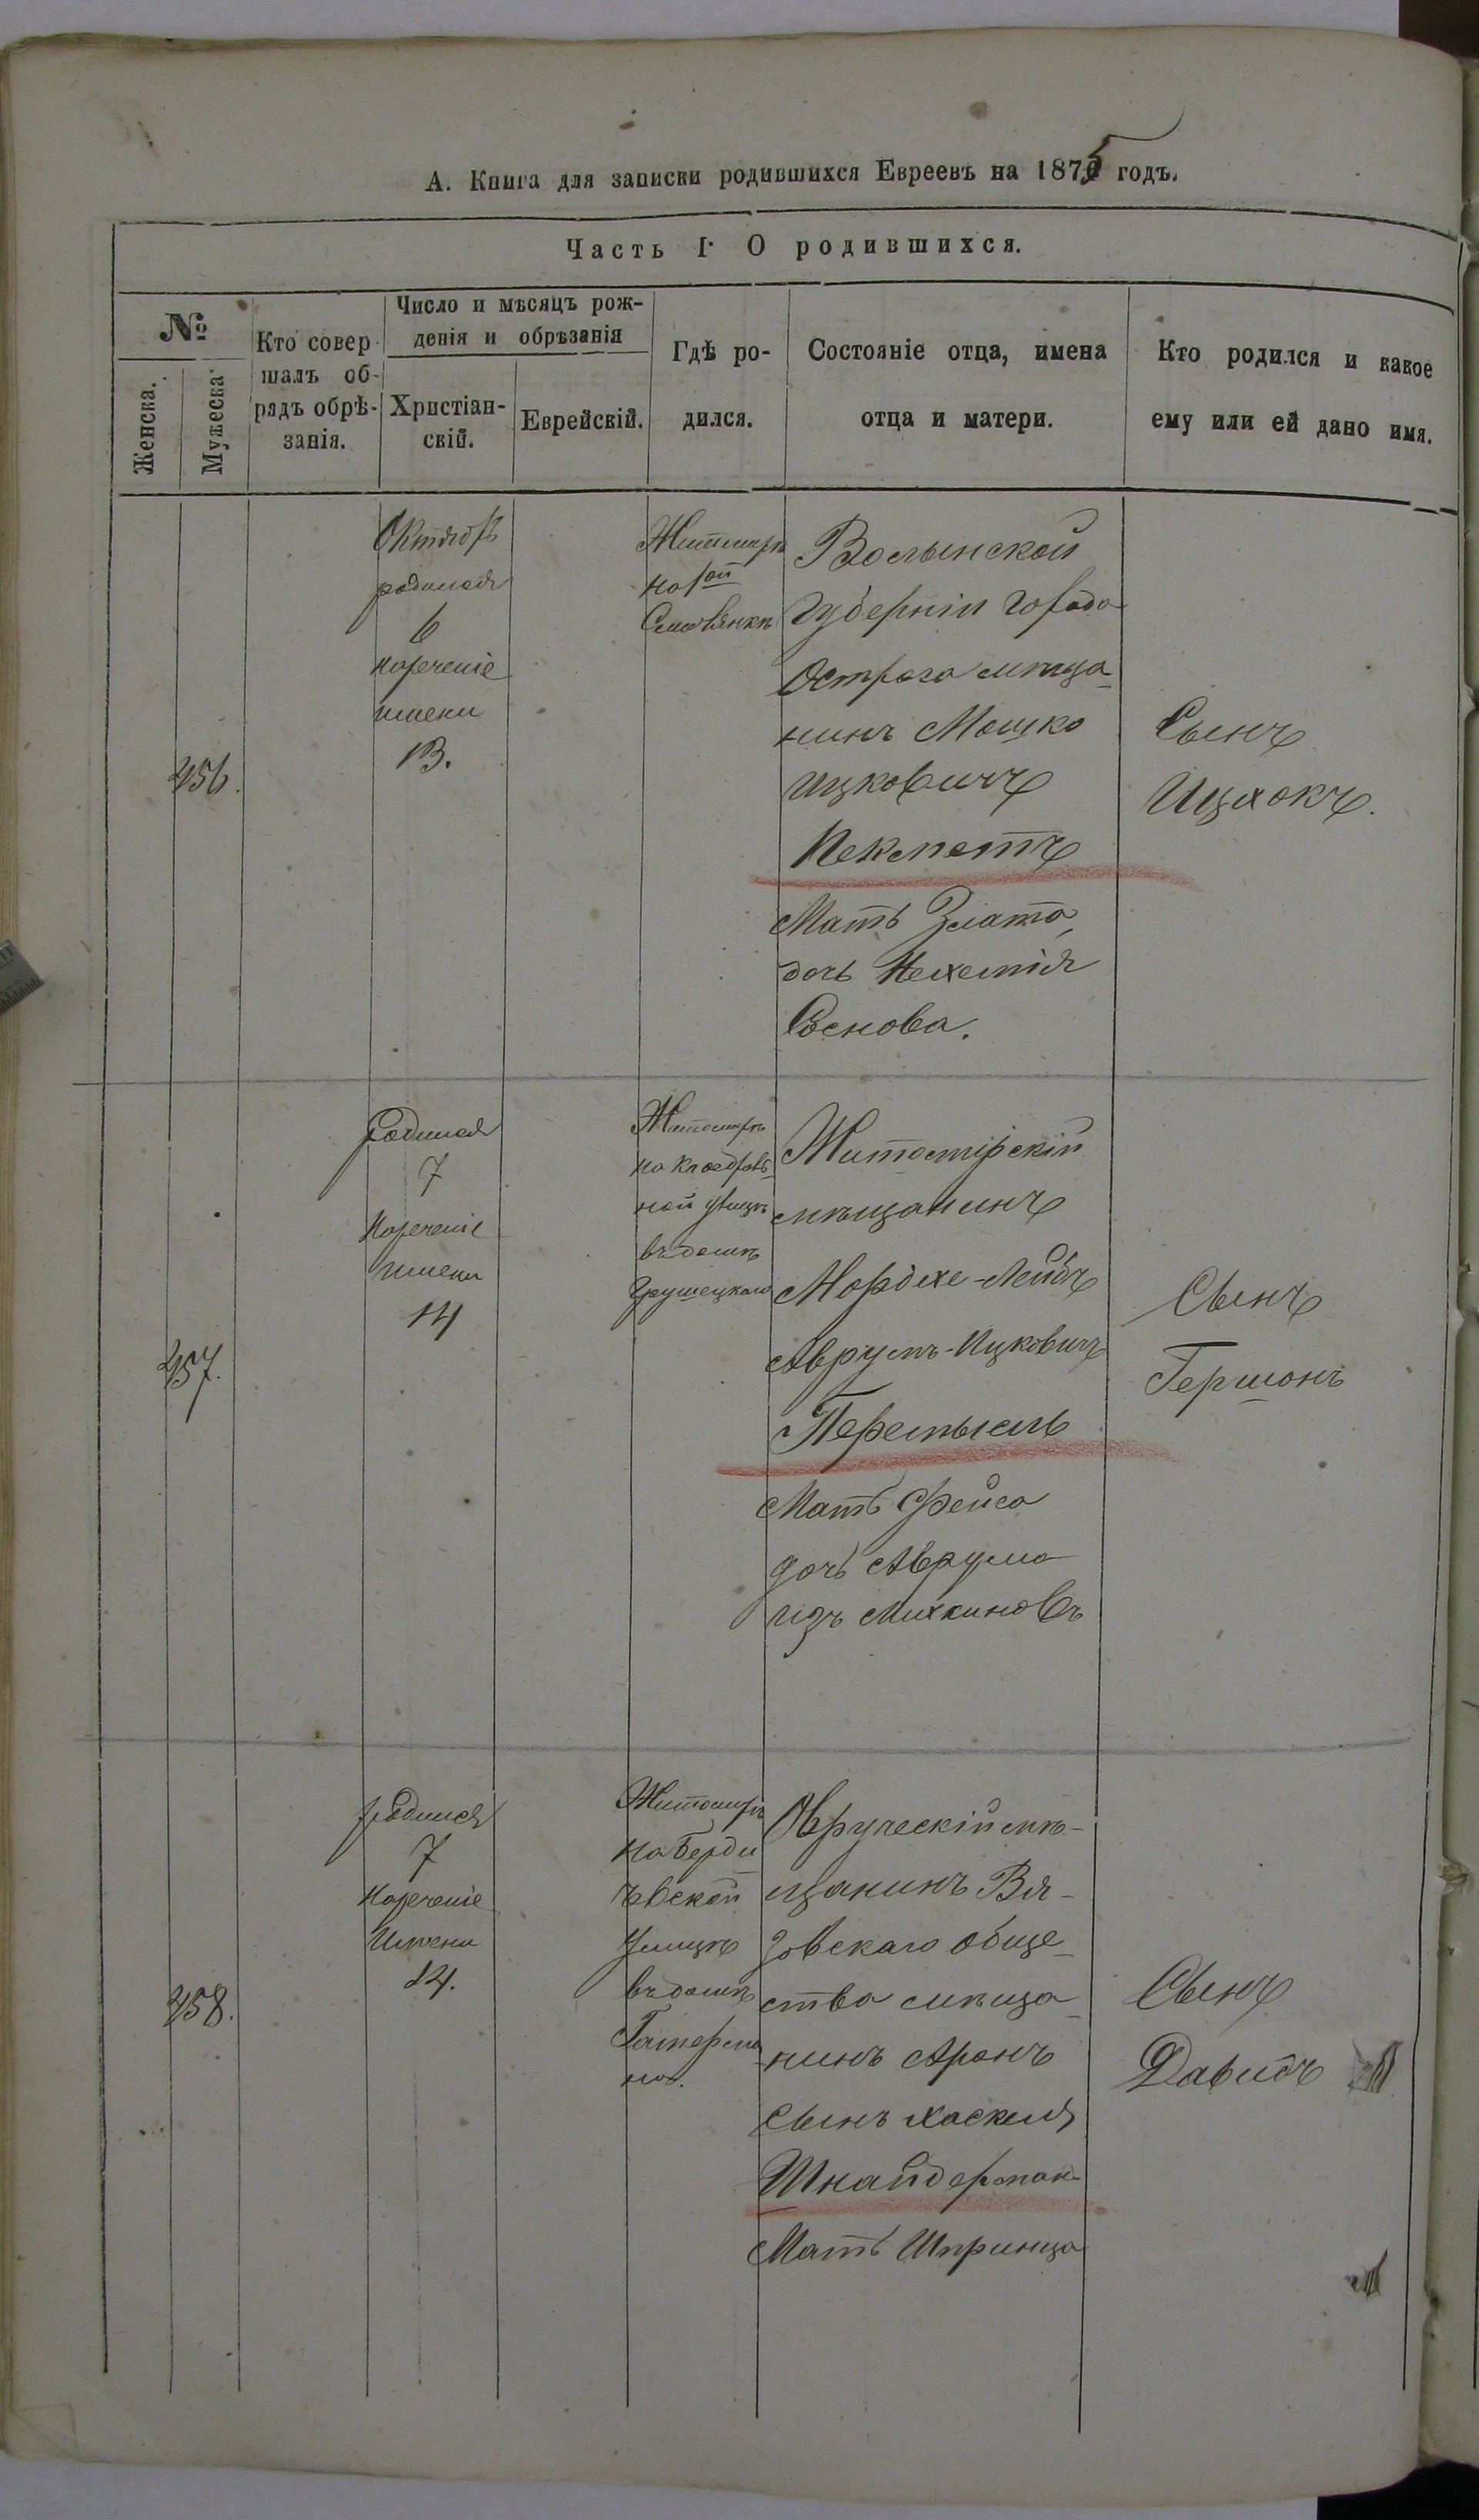 А. Книга для записки родившихся Евреевъ на 1875 годъ.
Часть I. О родившихся.
№
Женска.
Мужеска
Кто совер-
шалъ об-
рядъ обрѣ-
занія.
Число и мѣсяцъ рож-
денія и обрѣзанія
Христіан-
скій.
Еврейскій.
Гдѣ ро-
дился.
Состояніе отца, имена
отца и матери.
Кто родился и какое
ему или ей дано имя.
456.
Октябрь
родился
6
нареченіе
имени
13.
Житомиръ
на
Волынской
Губерніи города
Острога мѣща-
нинъ Мошко
Ицковичъ
Пекметъ
Мать Злата,
дочь Нехемія
Соснова.
Сынъ
Ицхокъ.
457.
Родился
7
Нареченіе
имени
14
Житомиръ
на Каѳедраль-
ной улицѣ
въ домѣ
Грушецкаго
Житомірскій
мѣщанинъ
Мордхе-Лейбъ
Аврумъ-Ицковичъ
Перемысль
Мать Фейга
дочь Аврума
изъ Михкиновъ
Сынъ
Гершонъ
458.
родился
7
Нареченіе
Имени
14.
Житомиръ
на Берди
чевской
улицѣ
въ домѣ
Овруческій мѣ-
щанинъ Вя-
зовскаго обще-
ства мѣща-
нинъ Аронъ
сынъ Хаскеля
Шнайдерман
Мать Шпринца
Сынъ
Давидъ